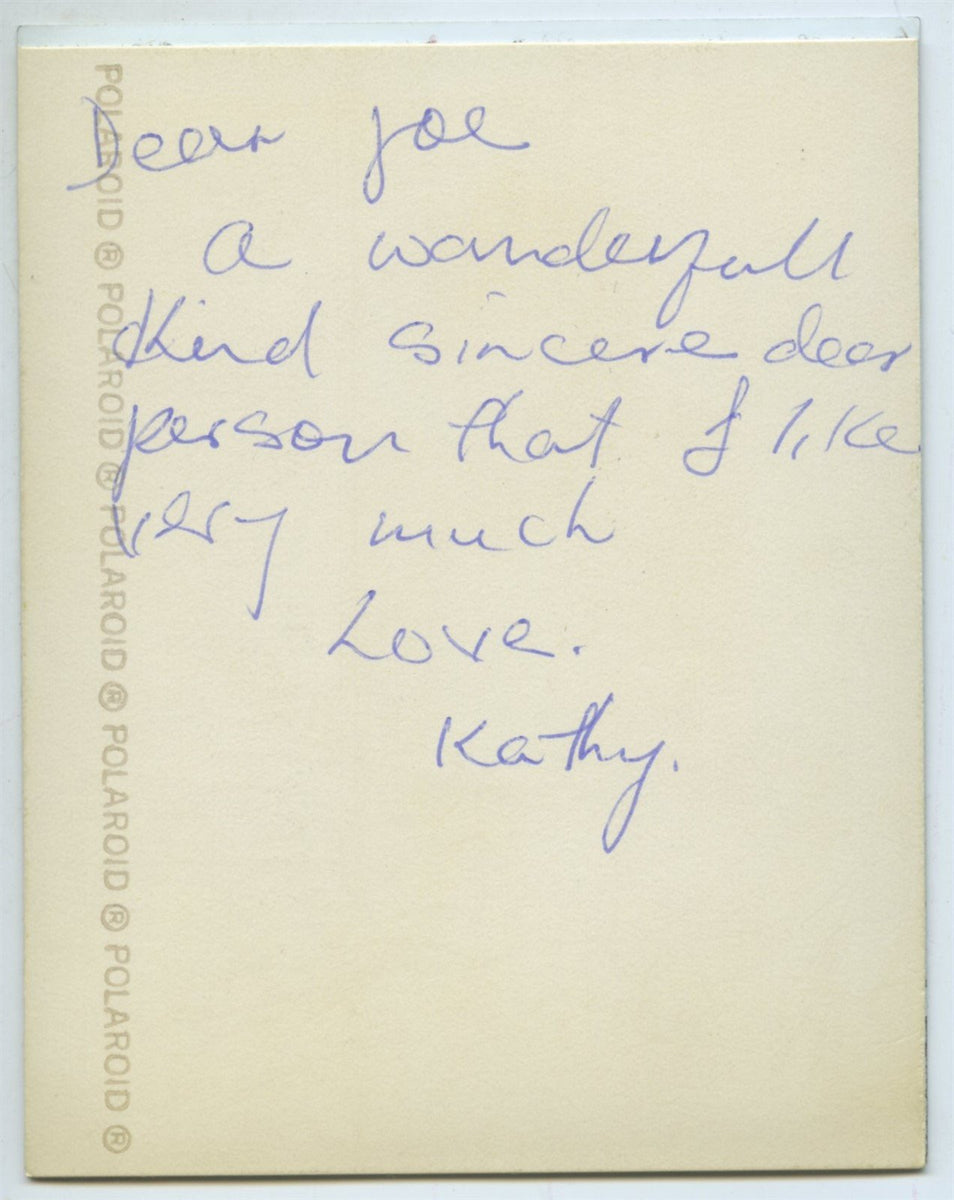 Dear Joe
a wanderfull
Kind sincere dear
person that I like
very much
Love.
Kathy.
POLAROID ® POLAROID ® POLAROID ® POLAROID ® POLAROID ®